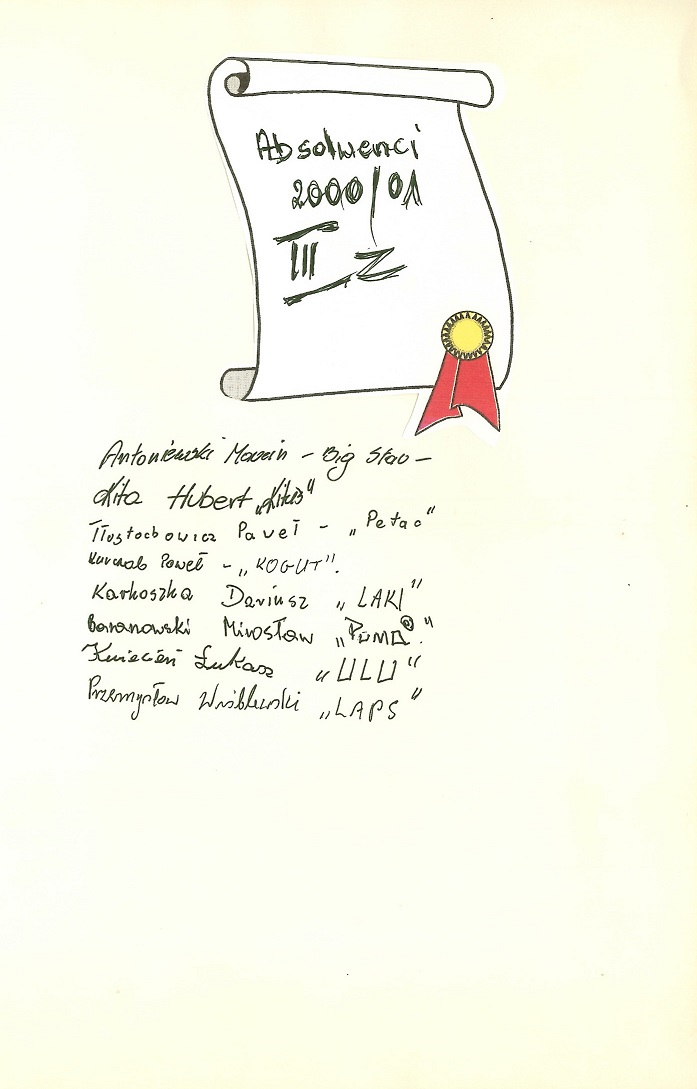 Absolwenci
2000/01
III Z
Antoniewski Marcin - Big Star -
Kita Hubert „Kitus"
Tłustochowicz Paweł - „Petac"
Paweł - „KOGUT".
Karkoszka Dariusz „LAKI"
Baranowski Mirosław „PUMA".
Kwiecień Łukasz „ULU"
Przemysław Wróblewski „LAPS"